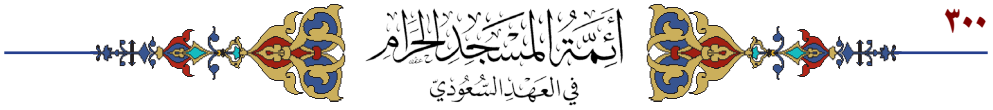 ٣٠٠
أَئِمَّةُ المَسْجِدِ الحَرَامِ
في العَهْدِ السُّعُودِيّ